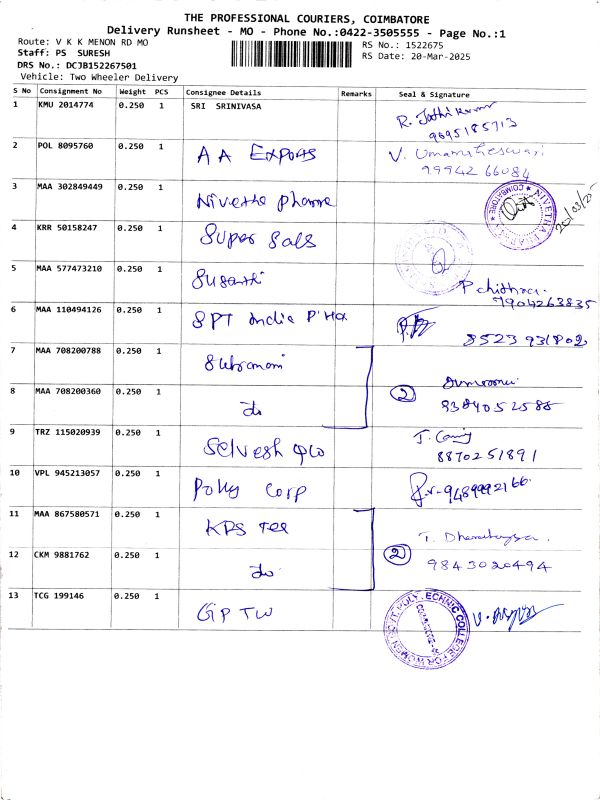 THE PROFESSIONAL COURIERS, COIMBATORE
Delivery Runsheet - MO - Phone No.:0422-3505555 - Page No.:1
Route: V K K MENON RD MO
RS No.: 1522675
Staff: PS SURESH
RS Date: 20-Mar-2025
DRS No.: DCJB152267501
Vehicle: Two Wheeler Delivery
S No Consignment No Weight PCS Consignee Details Remarks Seal & Signature
1 KMU 2014774 0.250 1 SRI SRINIVASA
9695185713
2 POL 8095760 0.250 1 AA Exports V. Umamaheswari
99942 66084
3 MAA 302849449 0.250 1 Nivetha pharma
COIMBATORE
20/03/25
4 KRR 50158247 0.250 1 Super Sals
5 MAA 577473210 0.250 1 Susanthi P chithra.
7904263835
6 MAA 110494126 0.250 1 SPT india P Ltd
8523 931802
7 MAA 708200788 0.250 1 Subramani
8 MAA 708200360 0.250 1 do 2
9384052588
9 TRZ 115020939 0.250 1 Selvesh
8870251891
10 VPL 945213057 0.250 1 Polly Corp
9489992166
11 MAA 867580571 0.250 1 KPS Tex
12 CKM 9881762 0.250 1 do 2
9843020494
13 TCG 199146 0.250 1 GPTW
GOVT. POLYTECHNIC COLLEGE FOR WOMEN